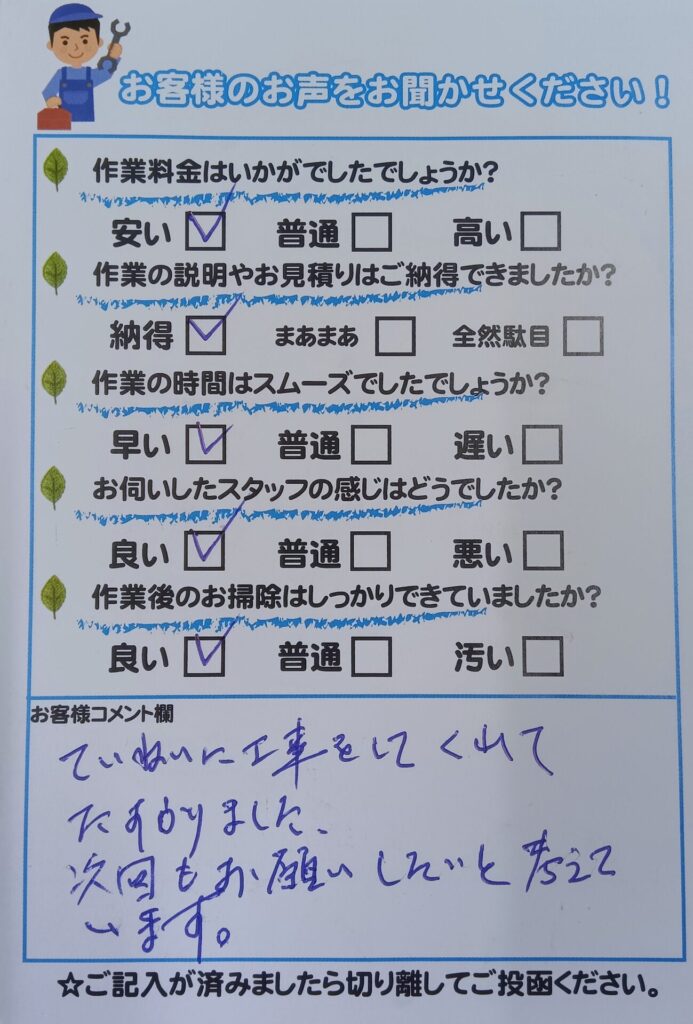 お客様のお声をお聞かせください！
作業料金はいかがでしたでしょうか？
安い 普通 高い
作業の説明やお見積りはご納得できましたか？
納得 まあまあ 全然駄目
作業の時間はスムーズでしたでしょうか？
早い 普通 遅い
お伺いしたスタッフの感じはどうでしたか？
良い 普通 悪い
作業後のお掃除はしっかりできていましたか？
良い 普通 汚い
お客様コメント欄
ていねいに工事をしてくれて
たすかりました、
次回もお願いしたいと考えて
います。
☆ご記入が済みましたら切り離してご投函ください。